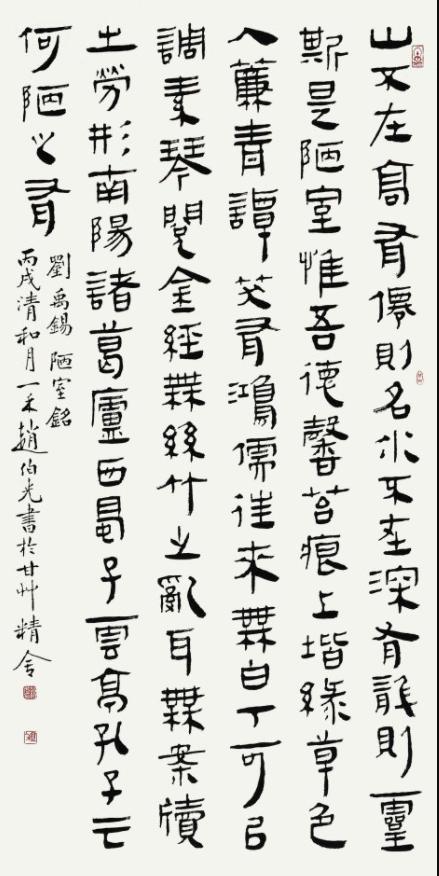 山不在高有僊則名水不在深有龍則靈
斯是陋室惟吾德馨苔痕上堦綠草色
入簾青譚笑有鴻儒往來無白丁可以
調素琴閱金經無絲竹之亂耳無案牘
之勞形南陽諸葛廬西蜀子雲高孔子云
何陋之有
劉禹錫 陋室銘
丙戌清和月一禾趙伯光書於甘艸精舍